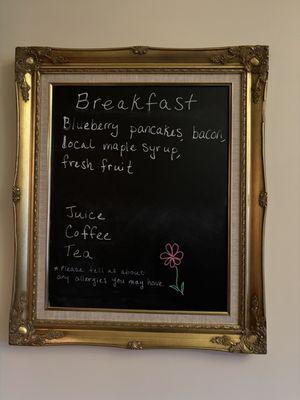 Breakfast
Blueberry pancakes, bacon,
local maple syrup,
fresh fruit
Juice
Coffee
Tea
* Please tell us about
any allergies you may have.